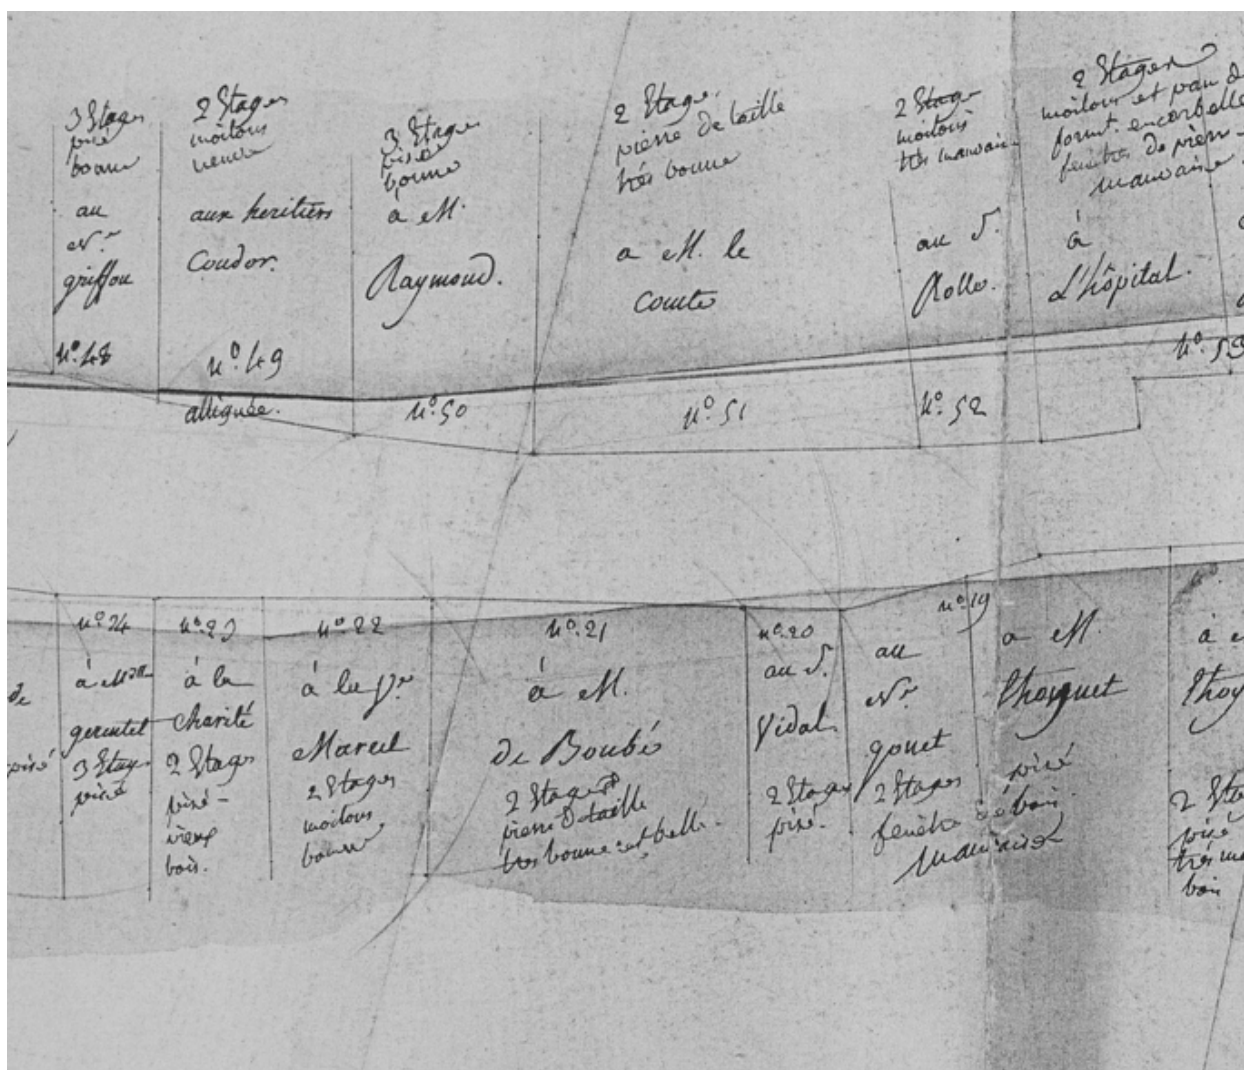 3 Stages
pisé
bonne
au
Nr
griffon
n° 48
2 Stages
moilons
neuve
aux heritiers
Coudor.
n° 49
alligneé.
3 Stages
pisé
bonne
à M.
Raymond.
n° 50
2 Stages.
pierre de taille
trés bonne
a M. le
Comte
n° 51
2 Stages
moilons
trés mauvais
au S.
Rollo.
n° 52
2 Stages
moilons et pan d
formt. encorbelle
fenêtres de pierre
mauvaise
à
L'hôpital.
n° 53
de
pisé
n° 24
à Mlle
gerentet
3 Stages
pisé
n° 23
à la
Charité
2 Stages
pisé
vieux
bois.
n° 22
à la Ve
Marcel
2 Stages
moilons
bonne
n° 21
à M.
de Boubé
2 Stages
pierre de taille
tres bonne et belle.
n° 20
au S.
Vidal
2 Stages
pisé.
au
Nr
gonet
2 Stages
fenêtre de bois
mauvaise
n° 19
a M.
Thoynet
pisé
n°
à
Thoy
2 Sta
pisé
trés ma
bois